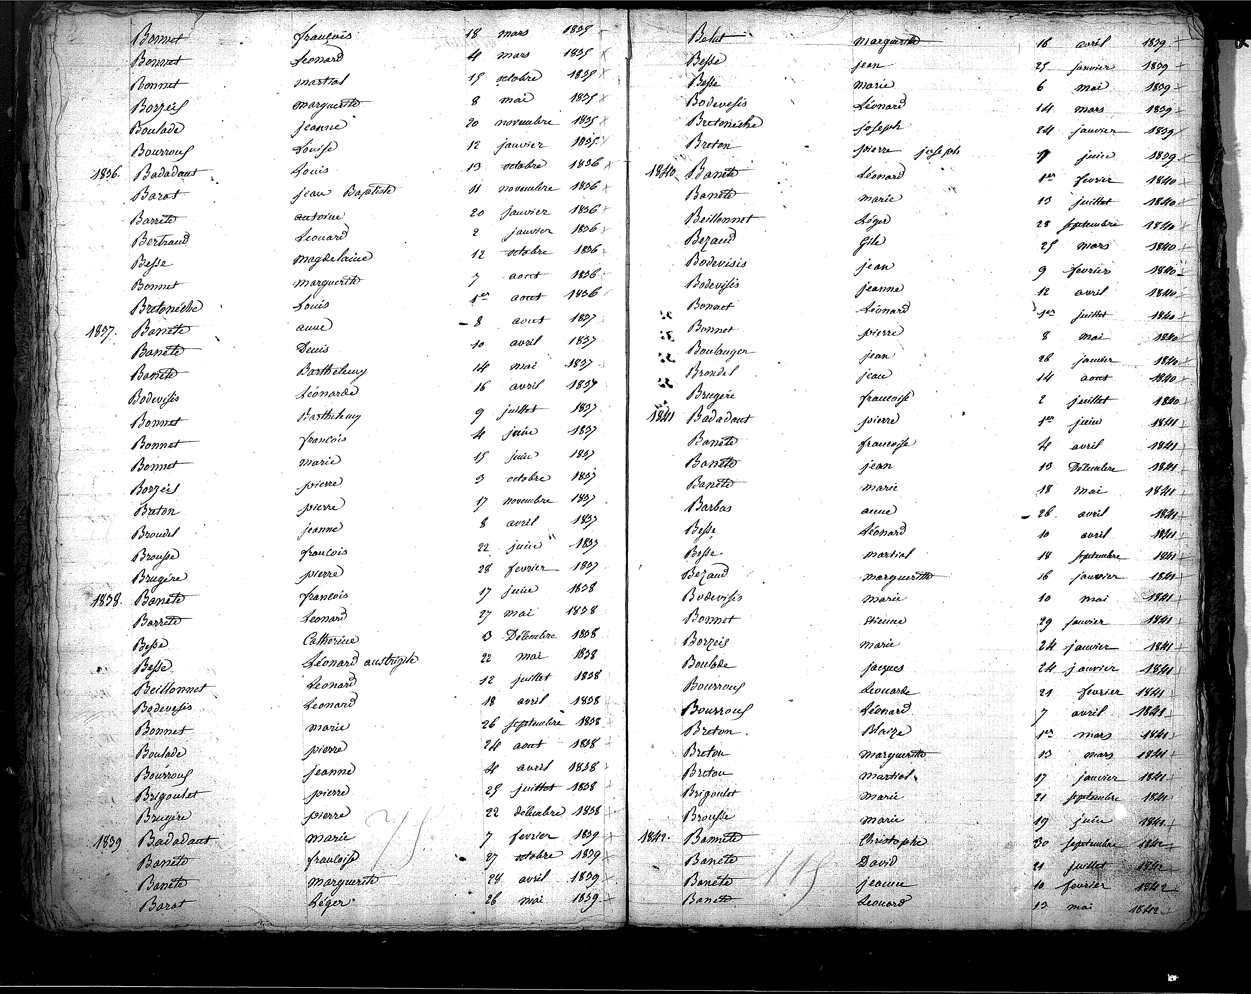 Bonnet françois 18 mars 1835
Bonnet Leonard 4 mars 1835
Bonnet martial 15 octobre 1835
Borzeis marguerite 8 mai 1835
Boulade jeanne 20 novembre 1835
Bourrouf Louise 12 janvier 1835
1836. Badadaut Louis 13 octobre 1836
Barat jean Baptiste 11 novembre 1836
Barrète antoine 20 janvier 1836
Bertraud Leonard 2 janvier 1836
Besse magdelaine 12 octobre 1836
Bonnet marguerite 7 aout 1836
Bretonèche Louis 1er aout 1836
1837. Banète anne 8 aout 1837
Banète Denis 10 avril 1837
Banète Barthelemy 14 mai 1837
Bodevissis Léonarde 16 avril 1837
Bonnet Barthelemy 9 juillet 1837
Bonnet françois 4 juin 1837
Bonnet marie 15 juin 1837
Borzeis pierre 3 octobre 1837
Breton pierre 17 novembre 1837
Broudel jeanne 8 avril 1837
Brousse françois 22 juin 1837
Brugère pierre 28 fevrier 1837
1838. Banète françois 17 juin 1838
Barrète Leonard 27 mai 1838
Besse Catherine 13 Décembre 1838
Besse Léonard austrigile 22 mai 1838
Beillonnet Leonard 12 juillet 1838
Bodevesis Leonard 18 avril 1838
Bonnet marie 26 septembre 1838
Boulade pierre 24 aout 1838
Bourrouf jeanne 4 avril 1838
Brigoulet pierre 25 juillet 1838
Brugère pierre 22 décembre 1838
1839 Badadaut marie 7 fevrier 1839
Banète françoise 27 octobre 1839
Banète marguerite 24 avril 1839
Barat Léger 26 mai 1839
Belut marguerite 16 avril 1839
Besse jean 25 janvier 1839
Besse marie 6 mai 1839
Bodevesis Léonard 14 mars 1839
Bretonèche joseph 24 janvier 1839
Breton pierre joseph 7 juin 1839
1840 Banète Léonard 1er fevrier 1840
Banète marie 13 juillet 1840
Beillonnet Léger 28 septembre 1840
Bezaud Gile 25 mars 1840
Bodevisis jean 9 fevrier 1840
Bodevissis jeanne 12 avril 1840
Bonnet Léonard 1er juillet 1840
Bonnet pierre 8 mai 1840
Boulanger jean 28 janvier 1840
Brondel jean 14 aout 1840
Brugère françoise 2 juillet 1840
1841 Badadaut pierre 1er juin 1841
Banète françoise 4 avril 1841
Banète jean 13 Décembre 1841
Banète marie 18 mai 1841
Barbas anne 26 avril 1841
Besse Léonard 10 avril 1841
Besse martial 18 septembre 1841
Bezaud marguerite 16 janvier 1841
Bodevissis marie 10 mai 1841
Bonnet etienne 29 janvier 1841
Borzeis marie 24 janvier 1841
Boulade jacques 24 janvier 1841
Bourrouf Leonarde 21 fevrier 1841
Bourrouf Léonard 7 avril 1841
Breton Blaize 1er mars 1841
Breton marguerite 13 mars 1841
Breton martial 17 janvier 1841
Brigoulet marie 21 septembre 1841
Brousse marie 19 juin 1841
1842. Bannète Christophe 30 septembre 1842
Banète David 21 juillet 1842
Banète jeanne 10 fevrier 1842
Banète Léonard 13 mai 1842